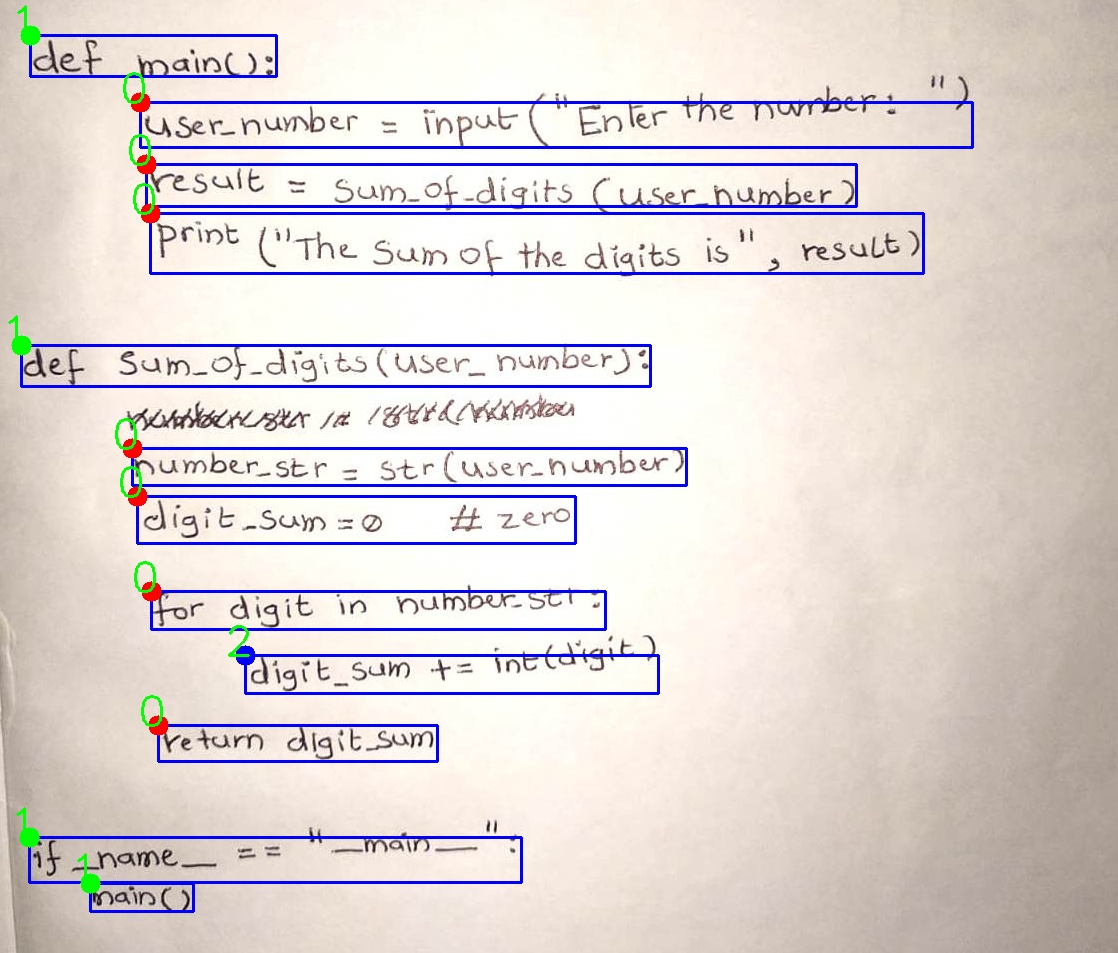 1
def main():
0
user_number = input("Enter the number: ")
0
result = sum_of_digits (user_number)
0
print ("The sum of the digits is", result)
1
def sum_of_digits(user_number):
0
number_str = str(user_number)
0
digit_sum = 0 # zero
0
for digit in number_str:
2
digit_sum += int(digit)
0
return digit_sum
1
if __name__ == "__main__":
1
main()